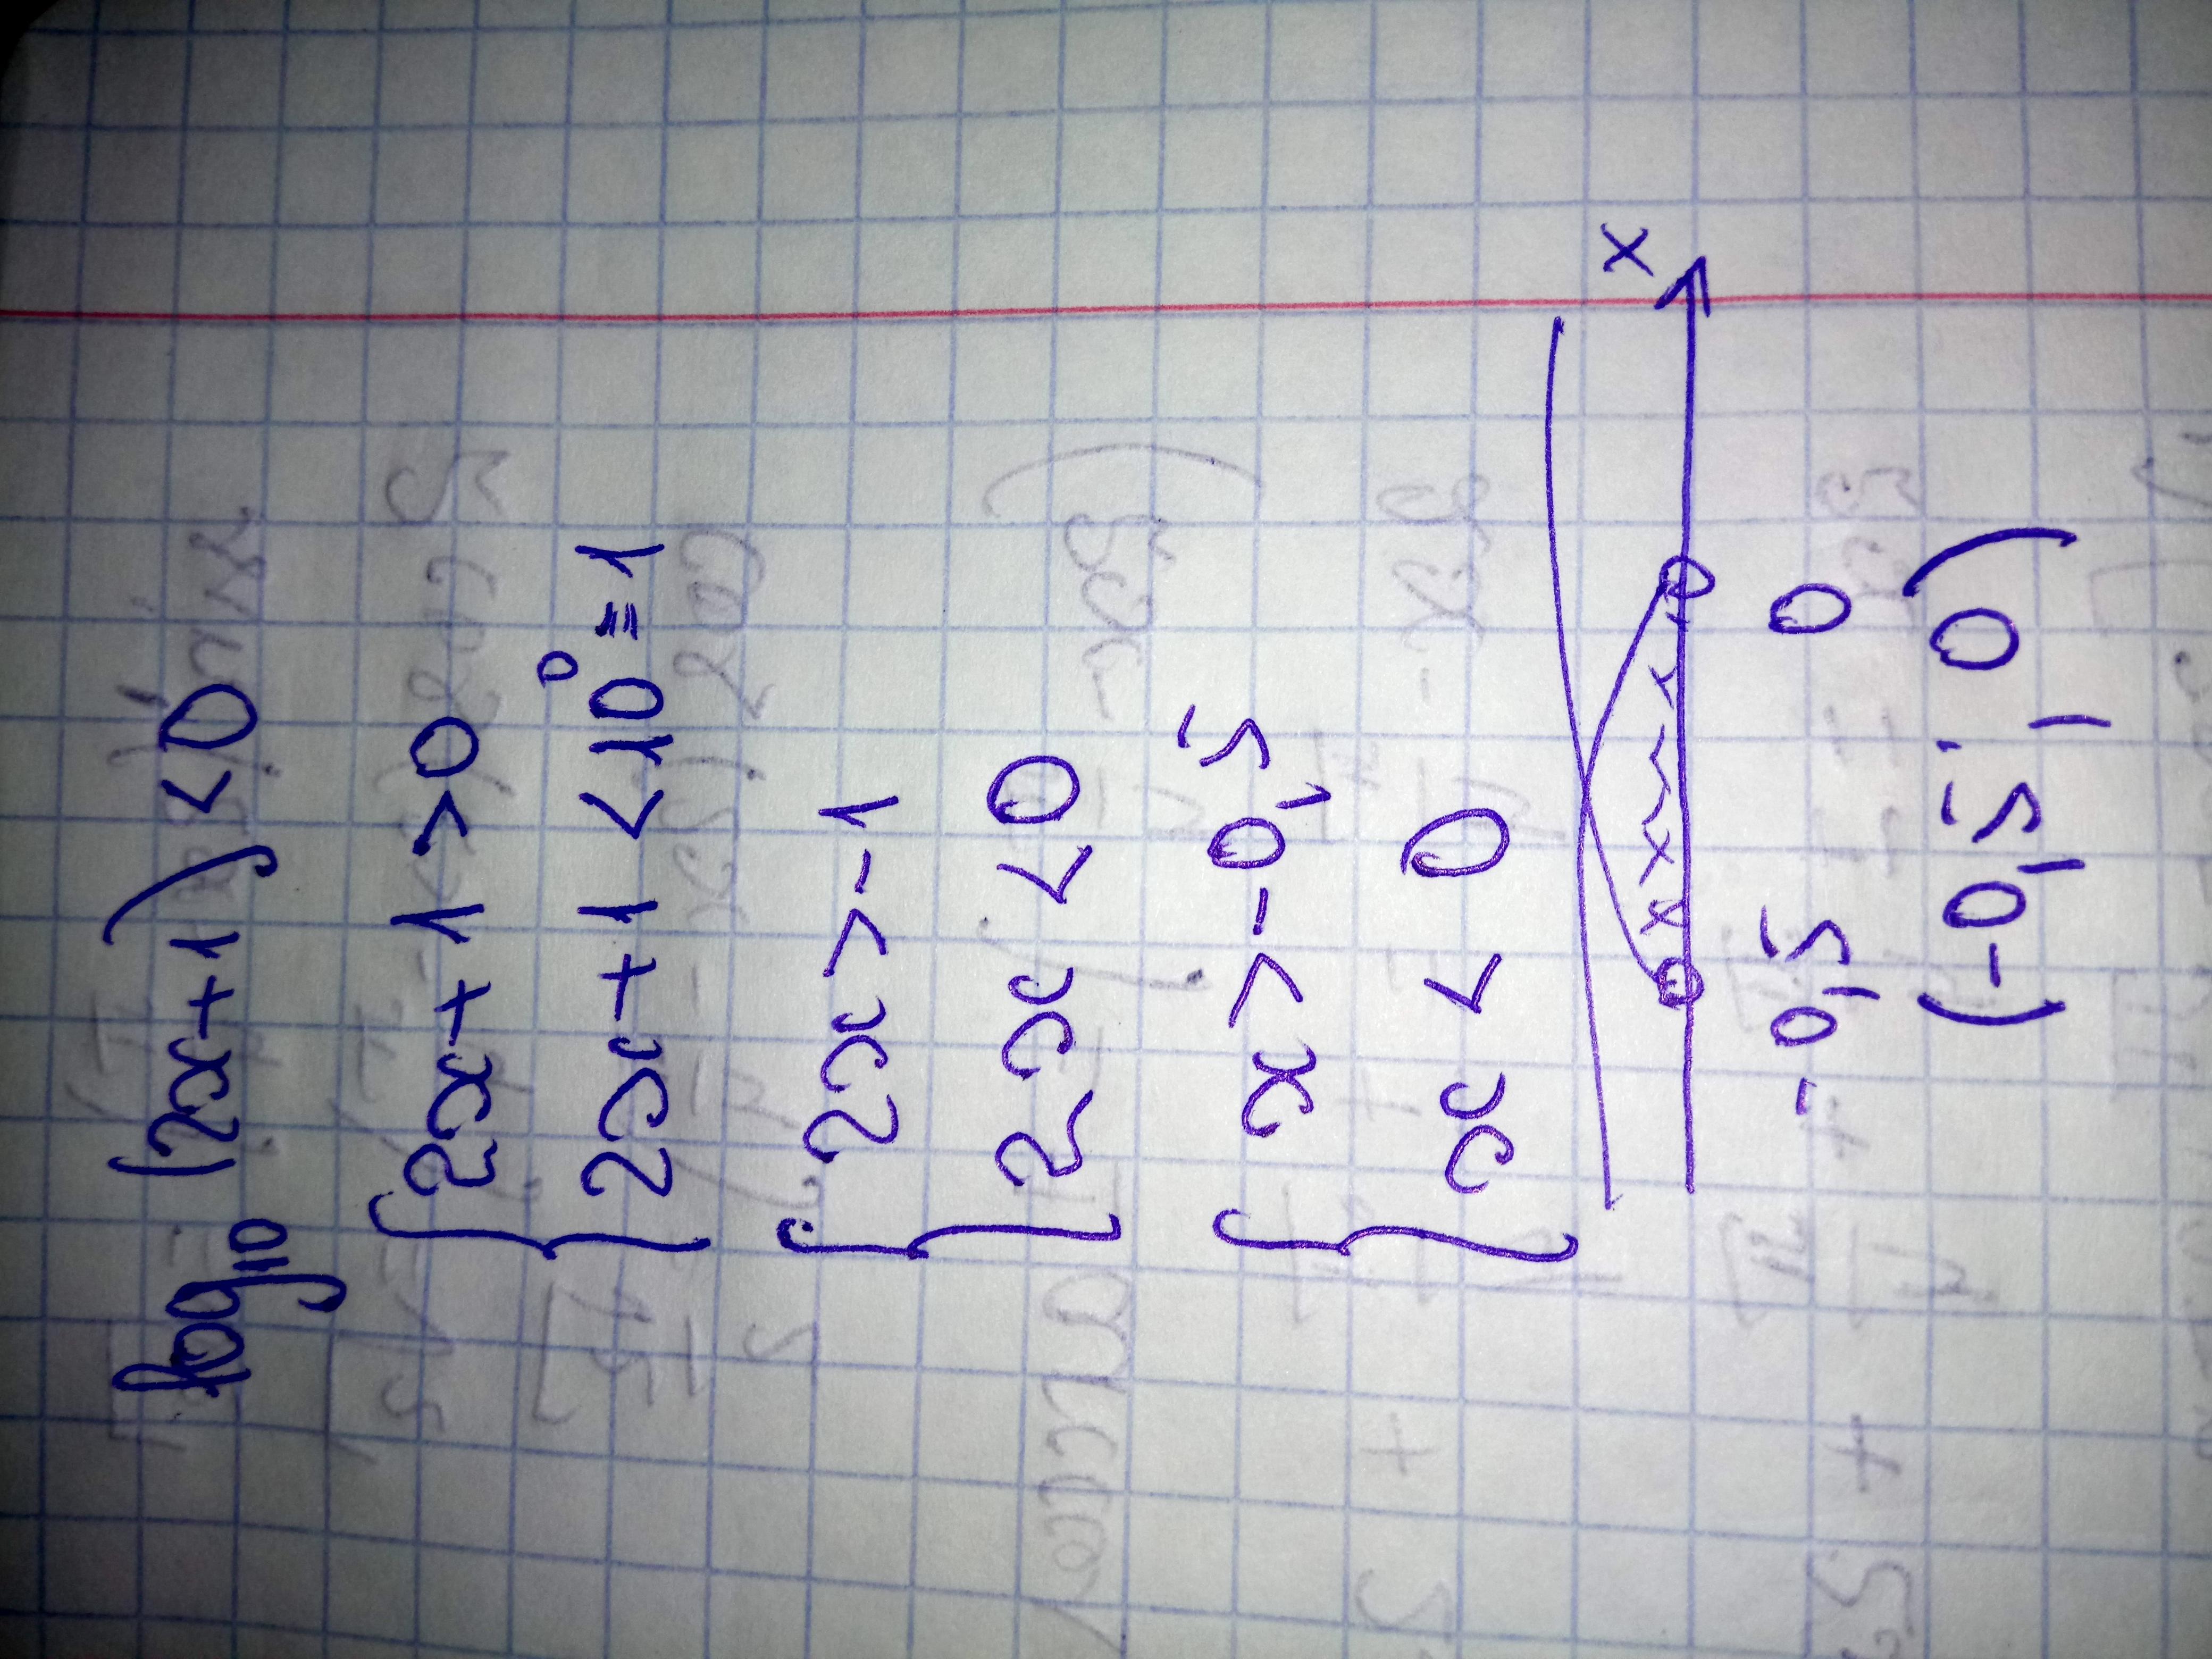 log₁₀ (2x+1) < 0
{ 2x + 1 > 0
2x + 1 < 10⁰ = 1
{ 2x > -1
2x < 0
{ x > -0,5
x < 0
x
-0,5 0
(-0,5; 0)